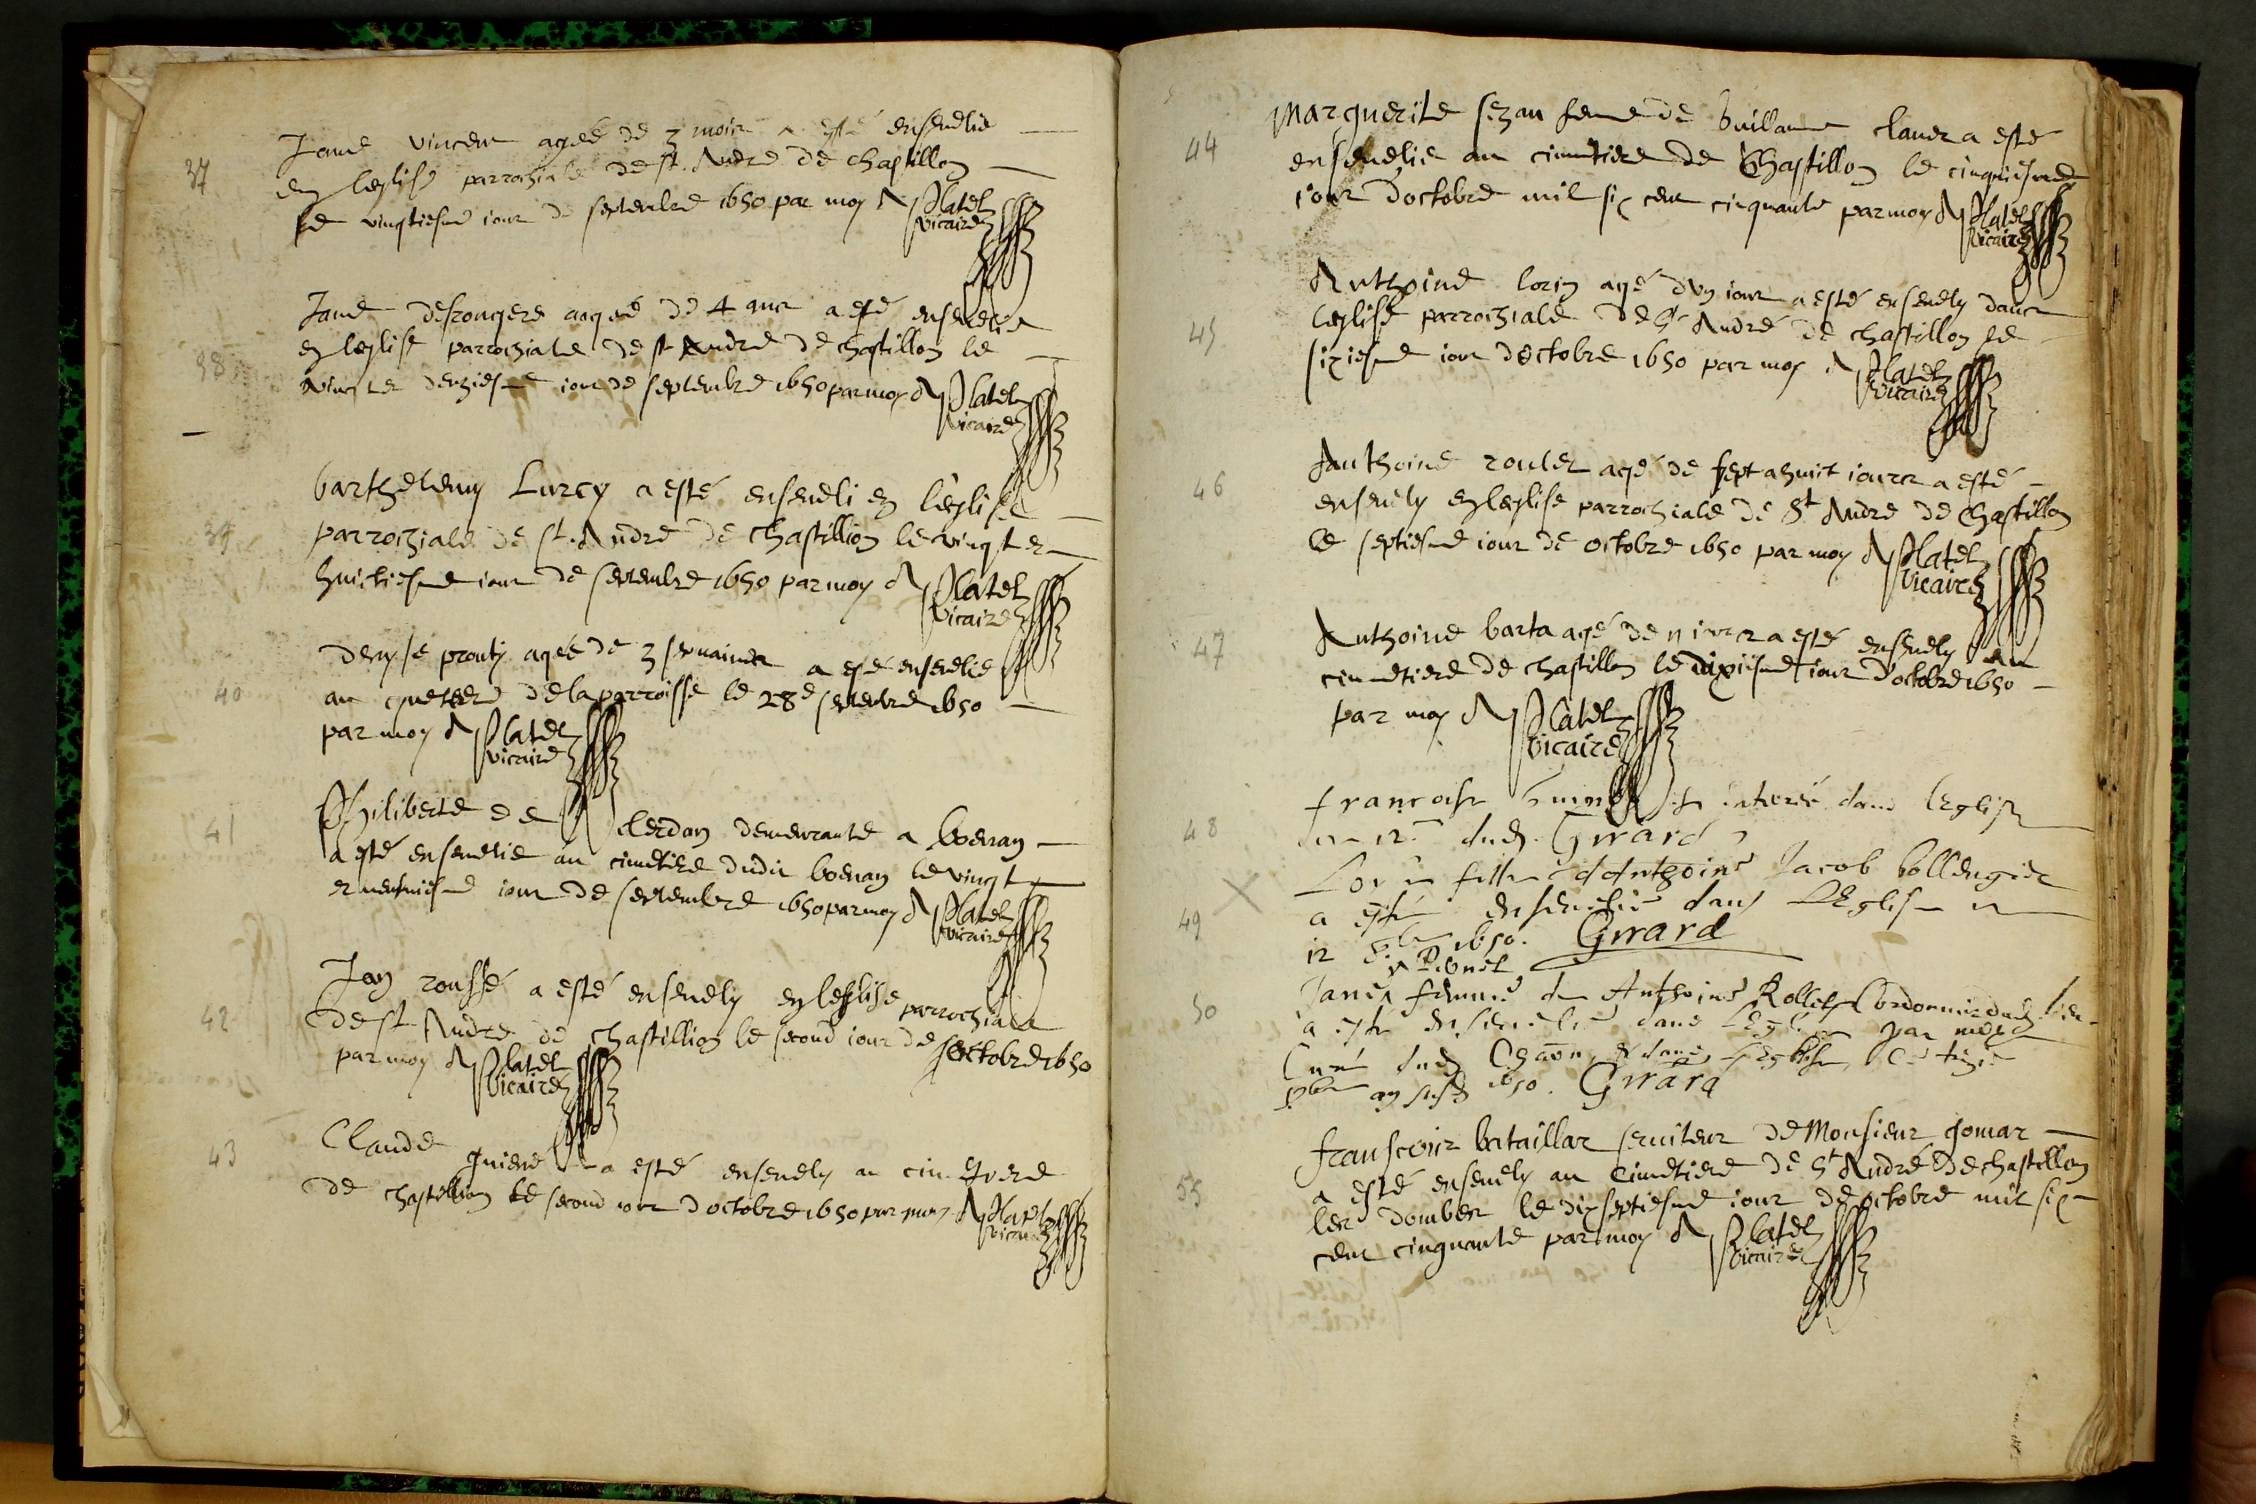 37
Jane vincent agée de 3 mois a esté ensevelie
en leglise parrochiale de st. André de chastillon
le vingtiesme iour de septembre 1650 par moy
Platel
vicaire
38
Jane desrongere aagée de 4 ans a esté ensevelie
en leglise parrochiale de st André de chastillon le
vingt et deuziesme iour de septembre 1650 par moy Platel
vicaire
39
barthelemy Lurcy a esté enseveli en l'eglise
parrochiale de st. André de chastillion le vingt et
huictiesme iour de septembre 1650 par moy Platel
vicaire
40
denyse proutz agée de 3 semaines a esté ensevelie
au de la parroisse le 28e septembre 1650
par moy Platel
vicaire
41
Philiberte de demeurante a boenan
a esté ensevelie au cimetiere dudit boenan le vingt
et neufviesme iour de septembre 1650 par moy Platel
vicaire
42
Jan rousse a esté ensevely en leglise parrochiale
de st. André de chastillion le second iour de octobre 1650
par moy Platel
vicaire
43
Claude a esté ensevely au cimetiere
de chastillion le second iour d octobre 1650 par moy Platel
vicaire
44
Marguerite sezan feme de Guillaume claver a esté
ensevelie au cimetiere de Chastillon le cinquiesme
iour d'octobre mil six cent cinquante par moy Platel
vicaire
45
Anthoine lorin agé d'un iour a esté ensevely dans
leglise parrochiale de St André de chastillon le
sixiesme iour d'octobre 1650 par moy Platel
vicaire
46
Anthoine roulet agé de sept a huit iours a esté
ensevely en leglise parrochiale de St André de Chastillon
le septiesme iour de octobre 1650 par moy Platel
vicaire
47
Anthoine barta agé de 11 iours a esté ensevely au
cimetiere de chastillon le dixiesme iour d'octobre 1650
par moy Platel
vicaire
48
francoise enterée dans leglise
dud. Girard
49
fille d'Anthoine Jacob bollengier
a esté ensevelie dans L'Eglise
12 1650. Girard
50
Jane femme de Anthoine Rollet Cordonnier dud.
a esté ensevelie dans l'Eglise par moy
Curé dud.
1650. Girard
55
franscois bataillar serviteur de Monsieur gomar
a esté ensevely au Cimetiere de St André de chastillon
les dombes le dixseptiesme iour de octobre mil six
cent cinquante par moy Platel
vicaire